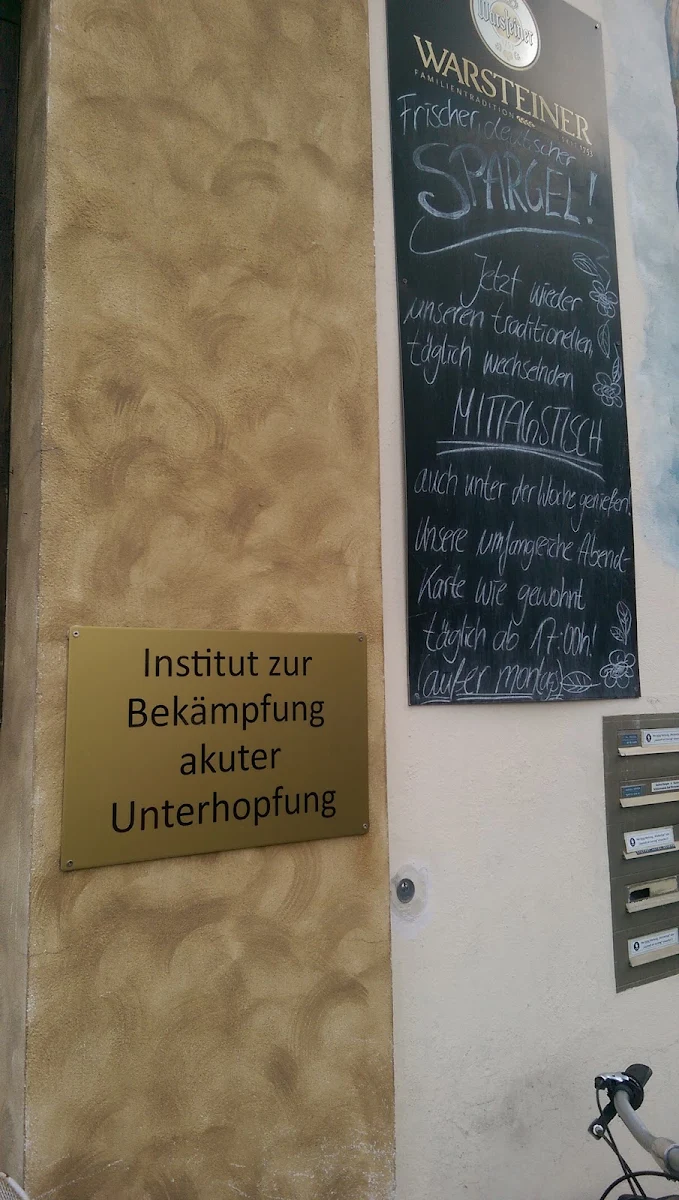 Institut zur
Bekämpfung
akuter
Unterhopfung
Warsteiner
WARSTEINER
FAMILIENTRADITION SEIT 1753
Frischer, deutscher
SPARGEL!
Jetzt wieder
unseren traditionellen,
täglich wechselnden
MITTAGSTISCH
auch unter der Woche genießen!
Unsere umfangreiche Abend-
Karte wie gewohnt
täglich ab 17:00h!
(außer montags)